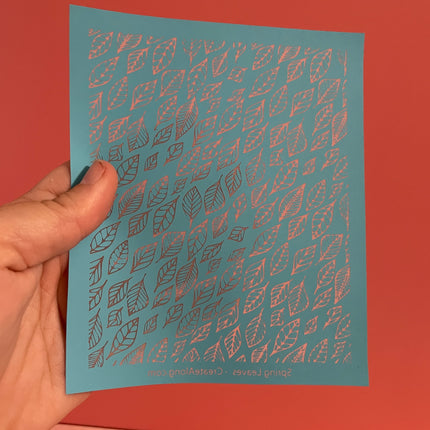 Spring Leaves - CreateAlong.com